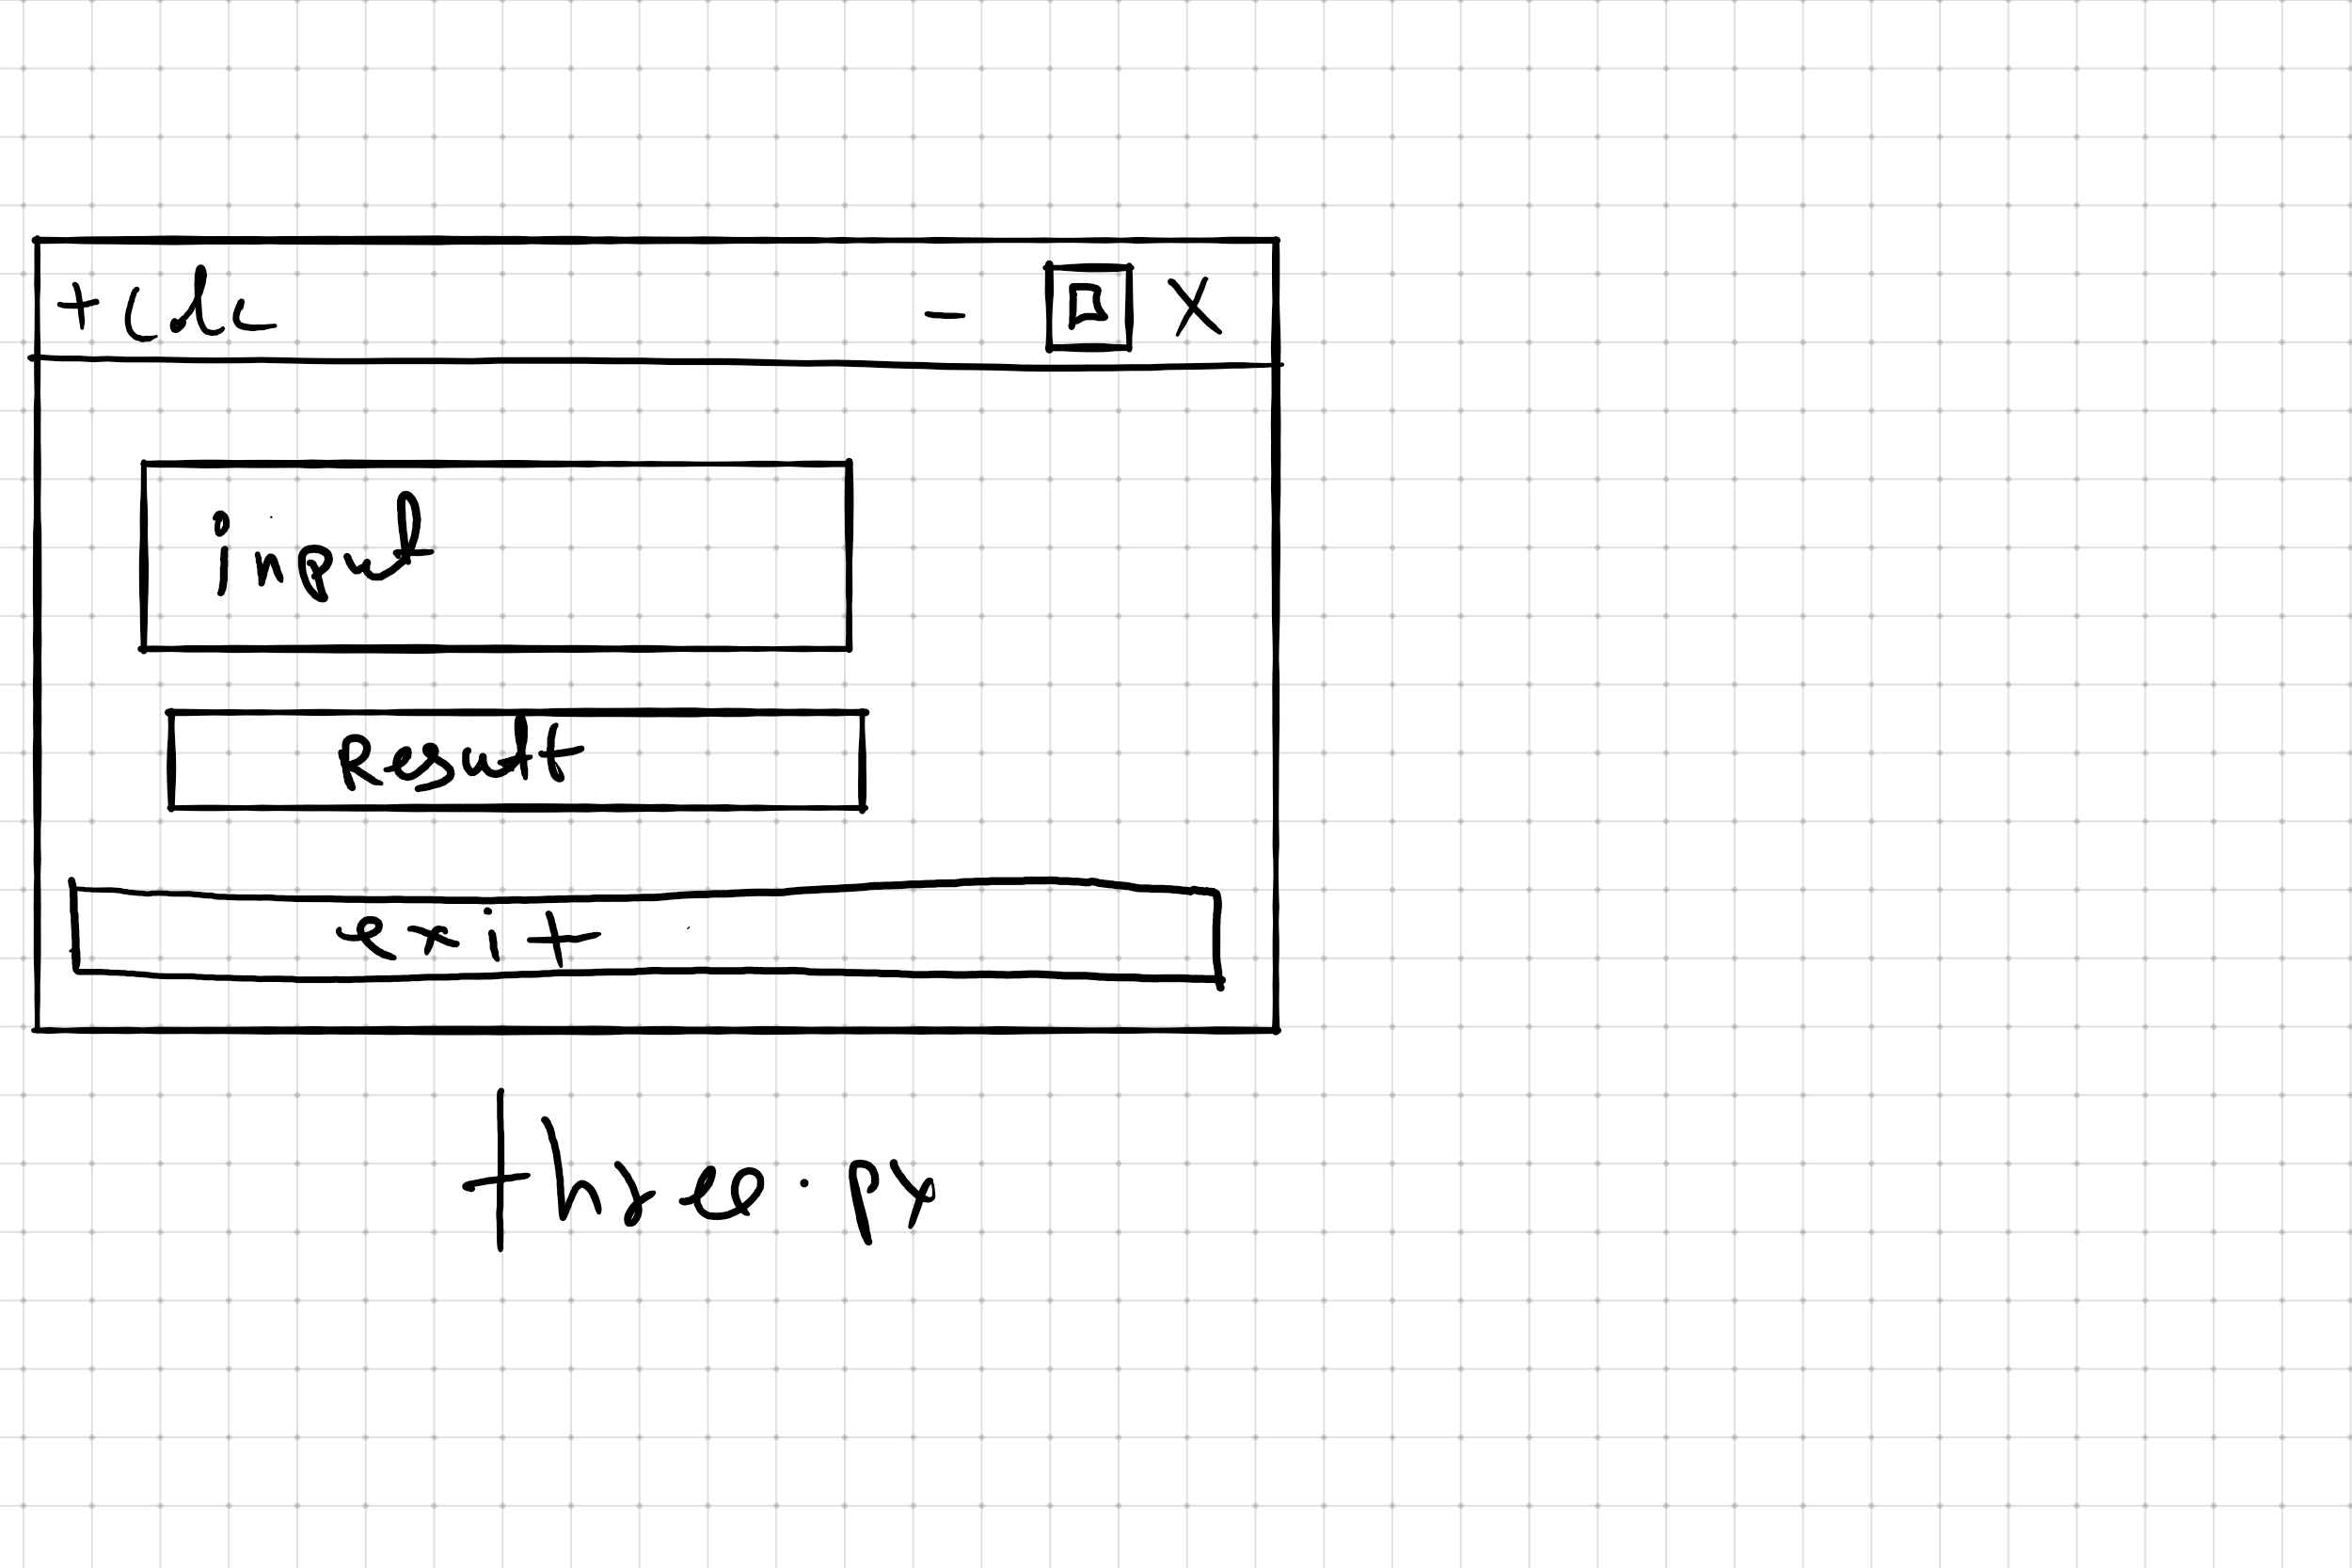 + Calc - X
input
Result
exit
three.py